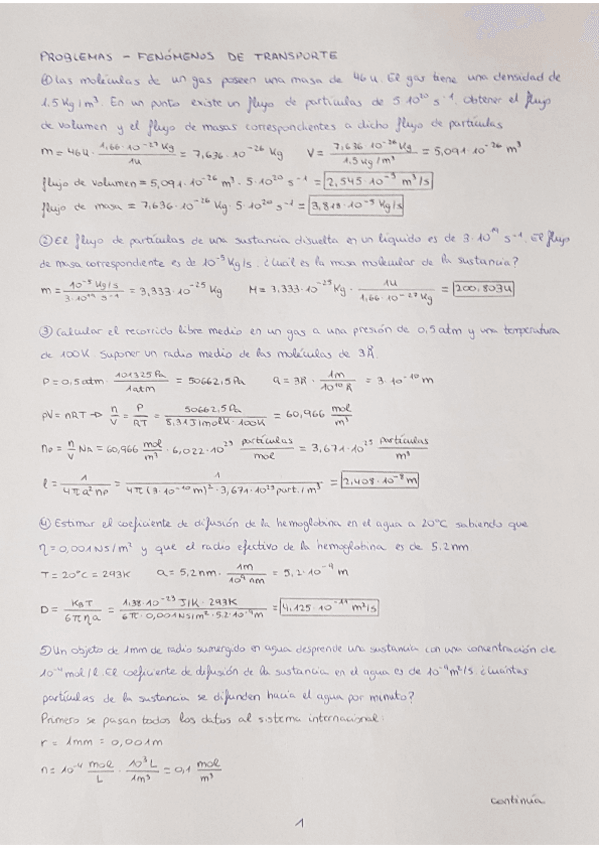 PROBLEMAS - FENÓMENOS DE TRANSPORTE
① Las moléculas de un gas poseen una masa de 46u. El gas tiene una densidad de
1.5 Kg/m³. En un punto existe un flujo de partículas de 5·10²⁰ s⁻¹. Obtener el flujo
de volumen y el flujo de masas correspondientes a dicho flujo de partículas
m = 46u · 1,66·10⁻²⁷ Kg / 1u = 7,636·10⁻²⁶ Kg V = 7,636·10⁻²⁶ Kg / 1.5 Kg/m³ = 5,091·10⁻²⁶ m³
flujo de volumen = 5,091·10⁻²⁶ m³ · 5·10²⁰ s⁻¹ = 2,545·10⁻⁵ m³/s
flujo de masa = 7,636·10⁻²⁶ Kg · 5·10²⁰ s⁻¹ = 3,818·10⁻⁵ Kg/s
② El flujo de partículas de una sustancia disuelta en un líquido es de 3·10¹⁹ s⁻¹. El flujo
de masa correspondiente es de 10⁻⁵ Kg/s. ¿Cuál es la masa molecular de la sustancia?
m = 10⁻⁵ Kg/s / 3·10¹⁹ s⁻¹ = 3,333·10⁻²⁵ Kg M = 3,333·10⁻²⁵ Kg · 1u / 1,66·10⁻²⁷ Kg = 200,803u
③ Calcular el recorrido libre medio en un gas a una presión de 0,5 atm y una temperatura
de 100K. Suponer un radio medio de las moléculas de 3Å.
P = 0,5 atm · 101325 Pa / 1 atm = 50662,5 Pa a = 3Å · 1m / 10¹⁰ Å = 3·10⁻¹⁰ m
pV = nRT → n/V = P/RT = 50662,5 Pa / 8,31 J/mol K · 100K = 60,966 mol/m³
n₀ = n/V NA = 60,966 mol/m³ · 6,022·10²³ partículas/mol = 3,671·10²⁵ partículas/m³
l = 1 / 4πa²n₀ = 1 / 4π(3·10⁻¹⁰ m)² · 3,671·10²⁵ part./m³ = 2,408·10⁻⁸ m
④ Estimar el coeficiente de difusión de la hemoglobina en el agua a 20°C sabiendo que
η = 0,001 NS/m² y que el radio efectivo de la hemoglobina es de 5,2nm
T = 20°C = 293K a = 5,2nm · 1m / 10⁹ nm = 5,2·10⁻⁹ m
D = KBT / 6πηa = 1,38·10⁻²³ J/K · 293K / 6π · 0,001 NS/m² · 5,2·10⁻⁹ m = 4,125·10⁻¹¹ m²/s
⑤ Un objeto de 1mm de radio sumergido en agua desprende una sustancia con una concentración de
10⁻⁴ mol/l. El coeficiente de difusión de la sustancia en el agua es de 10⁻⁹ m²/s. ¿Cuántas
partículas de la sustancia se difunden hacia el agua por minuto?
Primero se pasan todos los datos al sistema internacional:
r = 1mm = 0,001m
n = 10⁻⁴ mol/L · 10³ L / 1m³ = 0,1 mol/m³
continúa
1